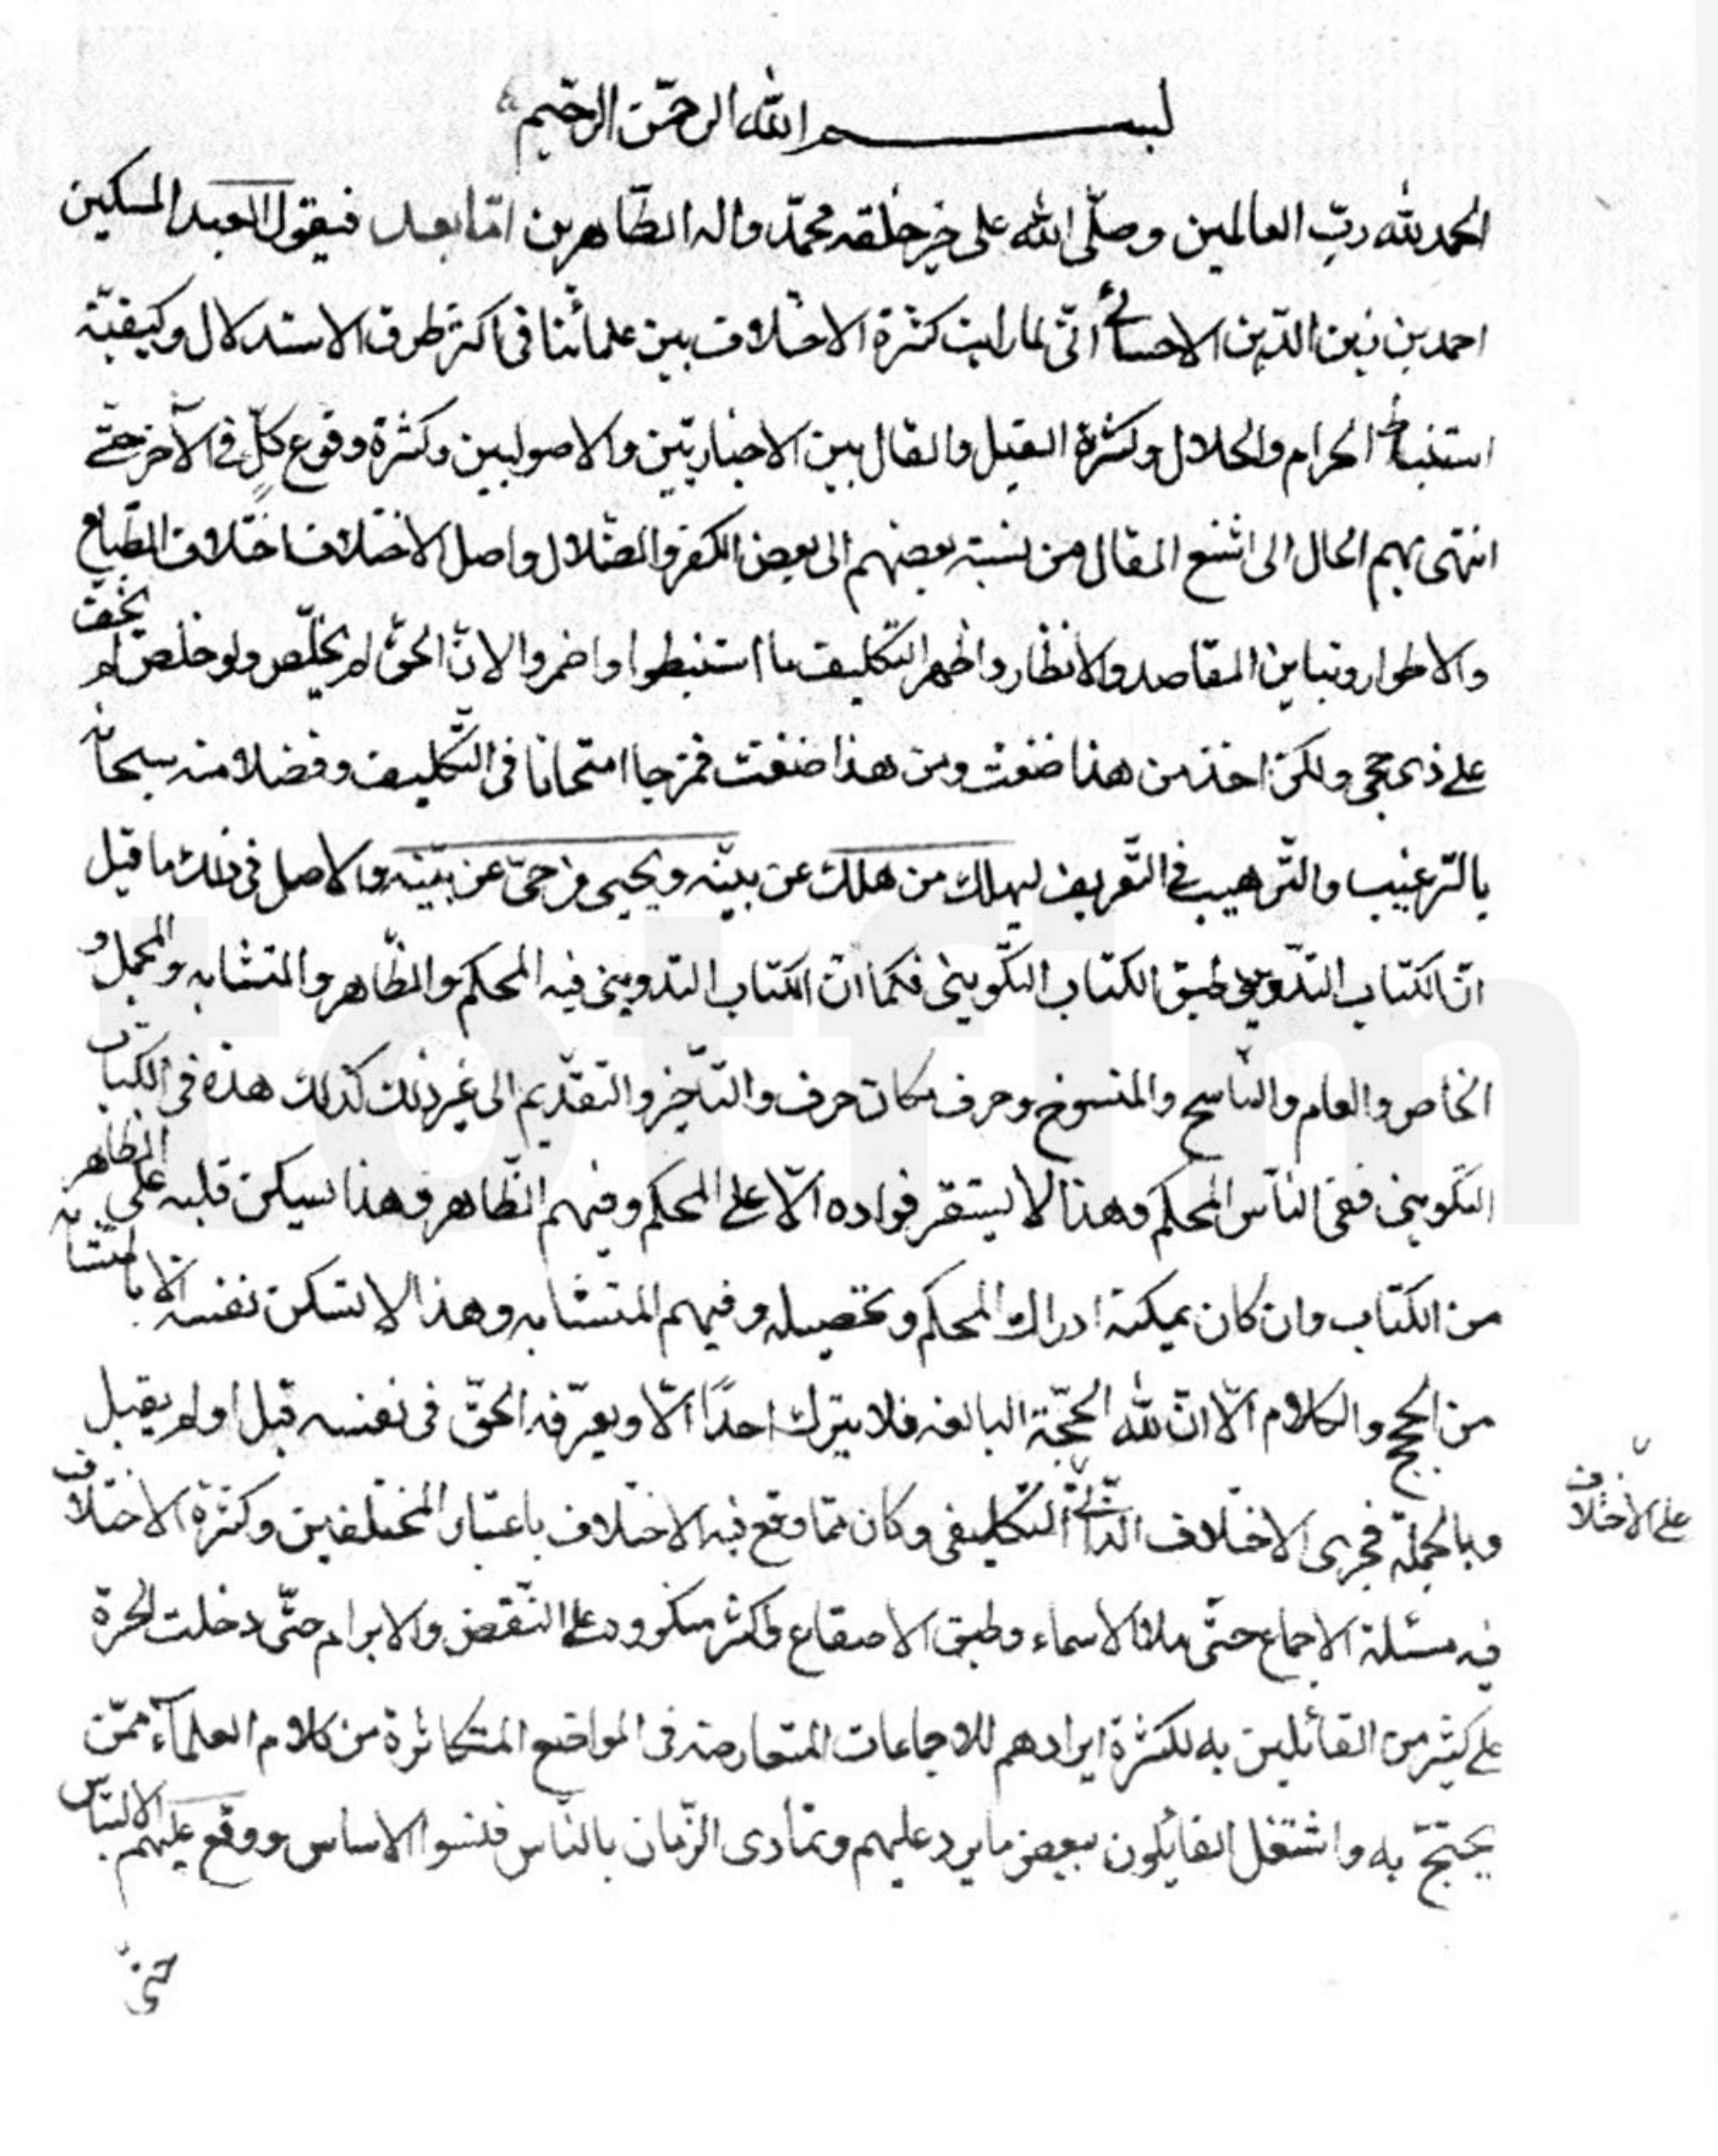 بسم الله الرحمن الرحيم
الحمد لله ربّ العالمين وصلّى الله على خير خلقه محمّد واله الطّاهرين امّا بعد فيقول العبد المسكين
احمد بن زين الدّين الاحسائی انّی لما رايت كثرة الاختلاف بين علمائنا فی اكثر طرق الاستدلال وكيفيّة
استنباط الحرام والحلال وكثرة القيل والقال بين الاخباريّين والاصوليين وكثرة وقوع كلٍّ فی الآخر حتّى
انتهى بهم الحال الى اشنع المقال من نسبة بعضهم الى بعض الكفر والضّلال واصل الاختلاف اختلاف الطّباع
والاطوار وتباين المقاصد والانظار واظهر التّكليف ما استنبطوا واضمروا لانّ الحقّ لم يخلّص ولو خلص لم يخف
على ذی حجی ولكن اخذ من هذا ضغث ومن هذا ضغث فمزجا امتحانا فی التّكليف وفضلا منه سبحانه
بالتّرغيب والتّرهيب فی التّعريف ليهلك من هلك عن بيّنه ويحيی من حیّ عن بيّنه والاصل فی ذلك ما قيل
انّ الكتاب التّدوينی طبق الكتاب التّكوينی فكما انّ الكتاب التدوينی فيه المحكم والظّاهر والمتشابه والمجمل و
الخاص والعام والنّاسخ والمنسوخ وحرف مكان حرف والتّاخير والتقديم الى غير ذلك كذلك هذه فی الكتاب
التّكوينی ففی النّاس المحكم وهذا لا يستقر فواده الّا على المحكم وفيهم الظّاهر وهذا يسكن قلبه على الظّاهر
من الكتاب وان كان يمكنه ادراك المحكم وتحصيله وفيهم المتشابه وهذا لا تسكن نفسه الّا بالمتشابه
من الحجج والكلام الّا انّ لله الحجّة البالغه فلا يترك احدًا الّا ويعرّفه الحقّ فی نفسه قبل او لم يقبل
وبالجملة فجرى الاختلاف الذّاتی التّكليفی وكان ممّا وقع فيه الاختلاف باعتبار المختلفين وكثرة الاختلاف
على الاختلاف
فيه مسئلة الاجماع حتّى ملا الاسماء وطبق الاصقاع واكثر على النّقض والابرام حتّى دخلت الحيرة
على كثير من القائلين به لكثرة ايرادهم للاجماعات المتعارضه فی المواضع المتكاثرة من كلام العلمآء ممّن
يحتجّ به واشتغل القايلون ببعض ما يرد عليهم وتمادى الزّمان بالنّاس فنسوا الاساس ووقع عليهم الالتباس
حتّى